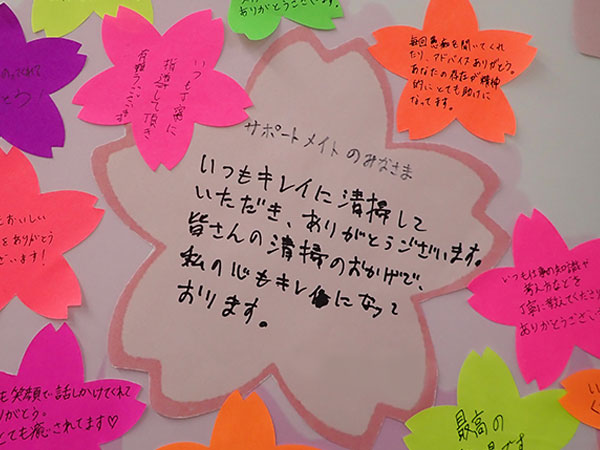 ありがとうございます。
いつも丁寧に
指導して頂き
有難うございます
毎回愚痴を聞いてくれ
たり、アドバイスありがとう。
あなたの存在が精神
的にとても助けに
なってます。
サポートメイトのみなさま
いつもキレイに清掃して
いただき、ありがとうございます。
皆さんの清掃のおかげで、
私の心もキレイになって
おります。
おいしい
をありがとう
ざいます!
いつも仕事の知識や
考え方などを
丁寧に教えてくださり
ありがとうござい
も笑顔で話しかけてくれて
りがとう。
とても癒されてます♡
最高の